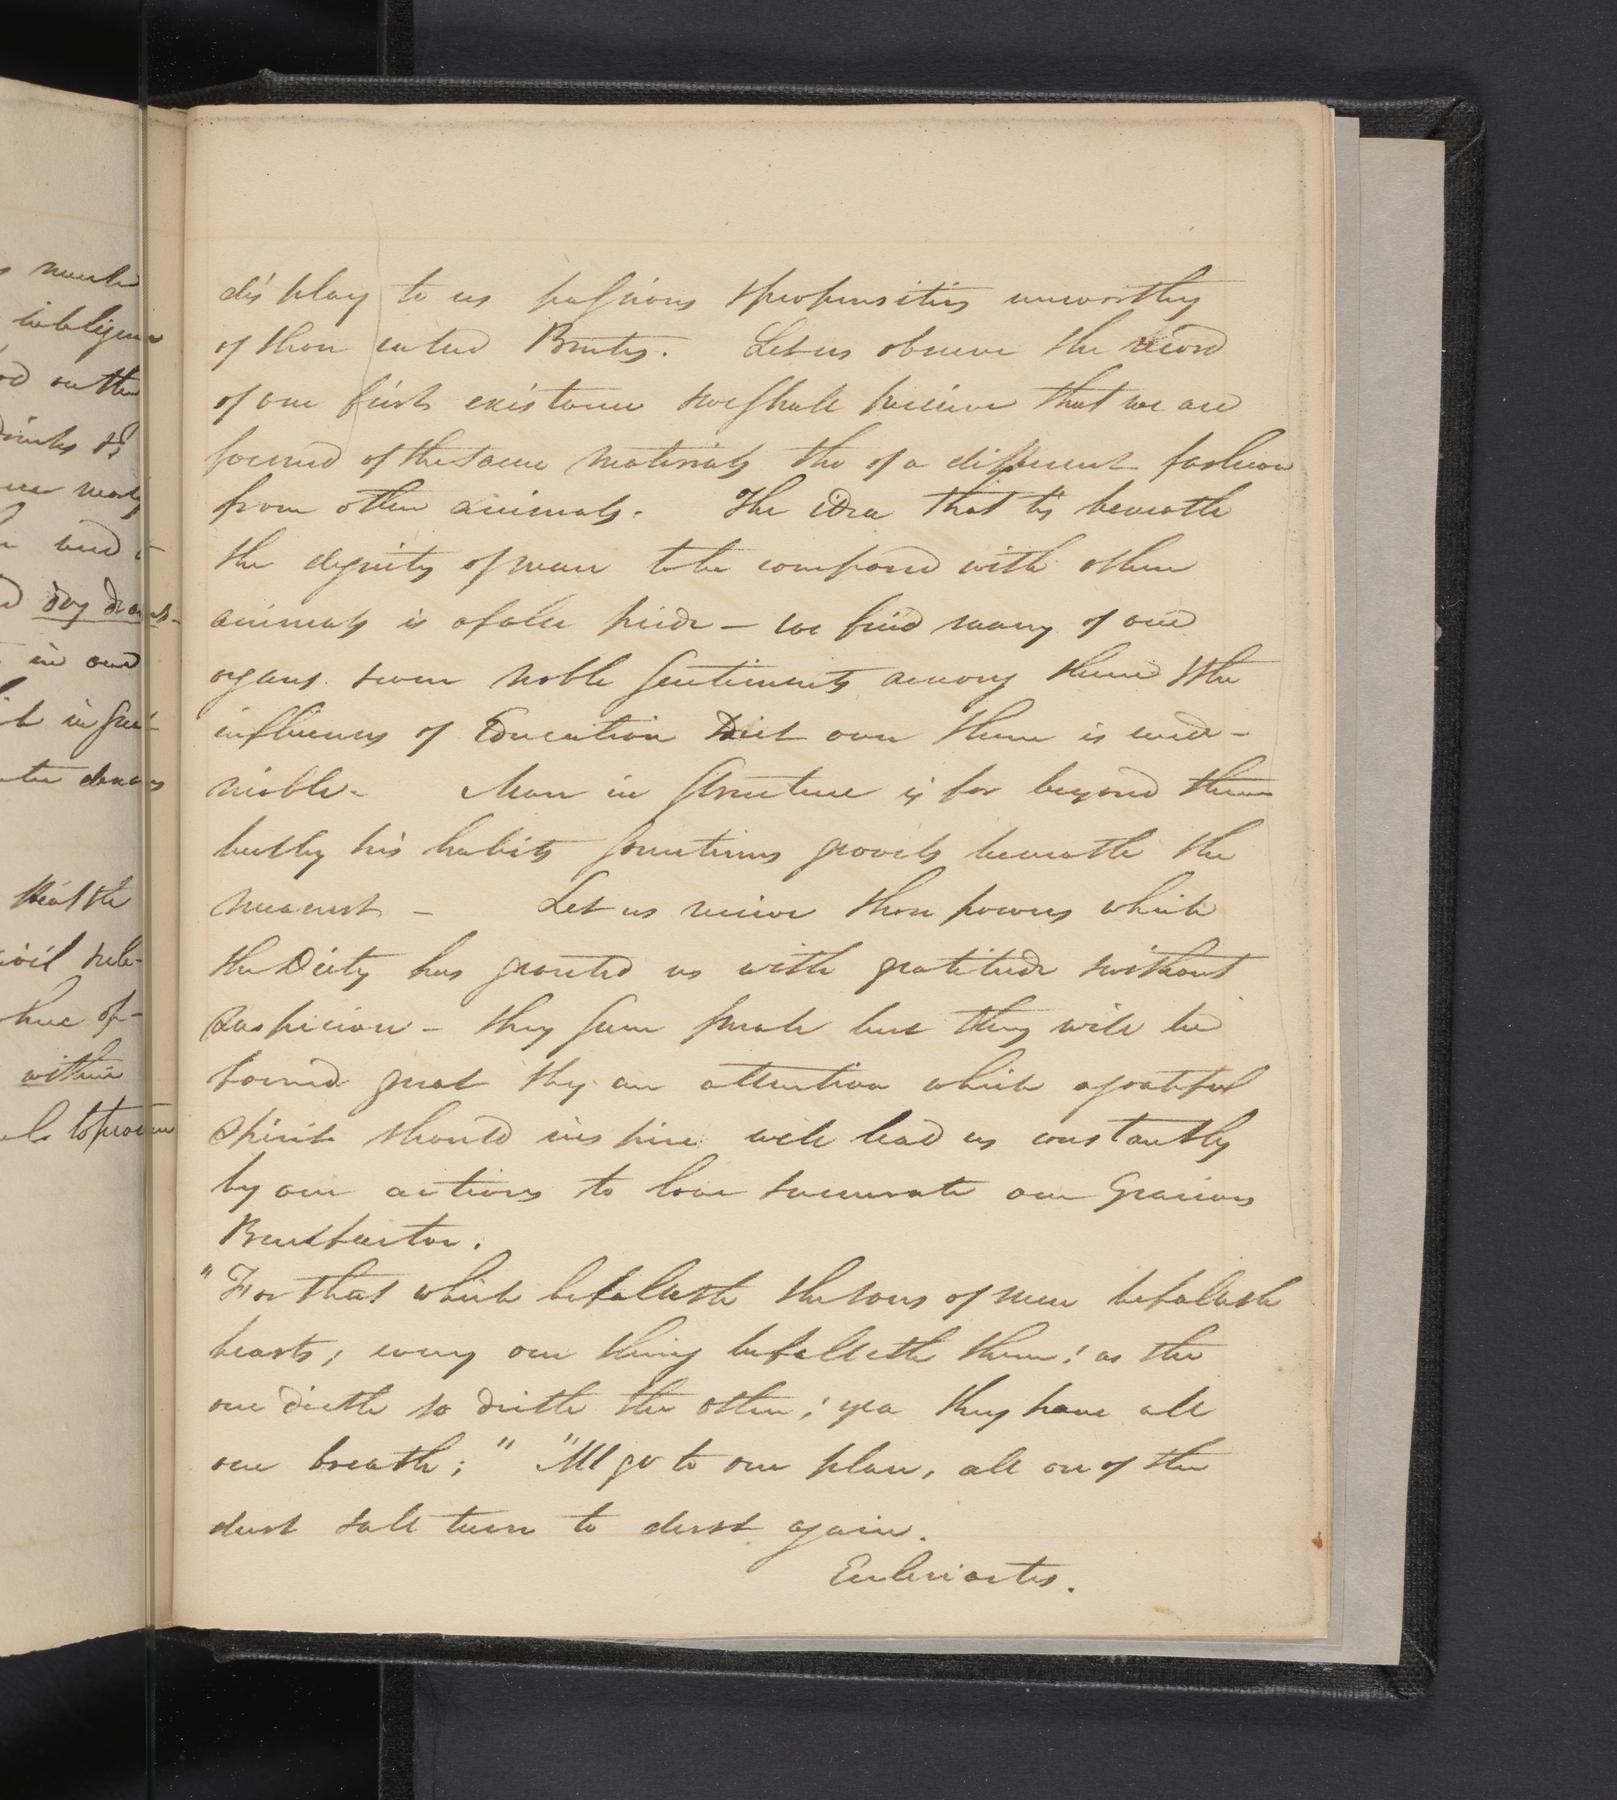 display to us passions & propensities unworthy
of those called Brutes. Let us observe the record
of our first existence & we shall perceive that we are
formed of the same materials tho of a different fashion
from other animals. The idea that tis beneath
the dignity of man to be compared with other
animals is a false pride – we find many of our
organs & even noble sentiments among them & the
influences of Education & Diet over them is unde-
niable - Man in structure is far beyond them
but by his habits sometimes grovels beneath the
meanest – Let us receive those powers which
the Deity has granted us with gratitude & without
suspicion – they seem small but they will be
found great & by an attention which a grateful
spirit should inspire will lead us constantly
by our actions to love & venerate our Gracious
Benefactor.
"For that which befalleth the sons of men befalleth
beasts; every one thing befalleth them: as the
one dieth so dieth the other; yea they have all
one breath;" "All go to one place, all are of the
dust & all turn to dust again.
Ecclesiastes.